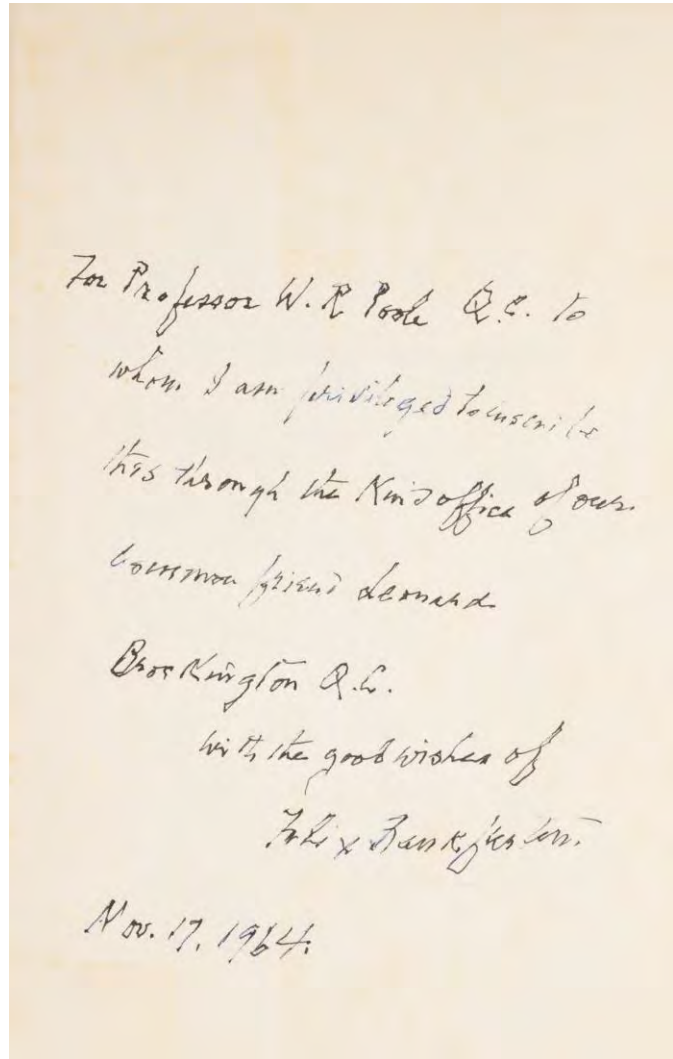 For Professor W. R Poole Q.C. to
whom I am privileged to inscribe
this through the kind office of our
common friend Leonard
Brockington Q.C.
with the good wishes of
Felix Frankfurter.
Nov. 17, 1964.